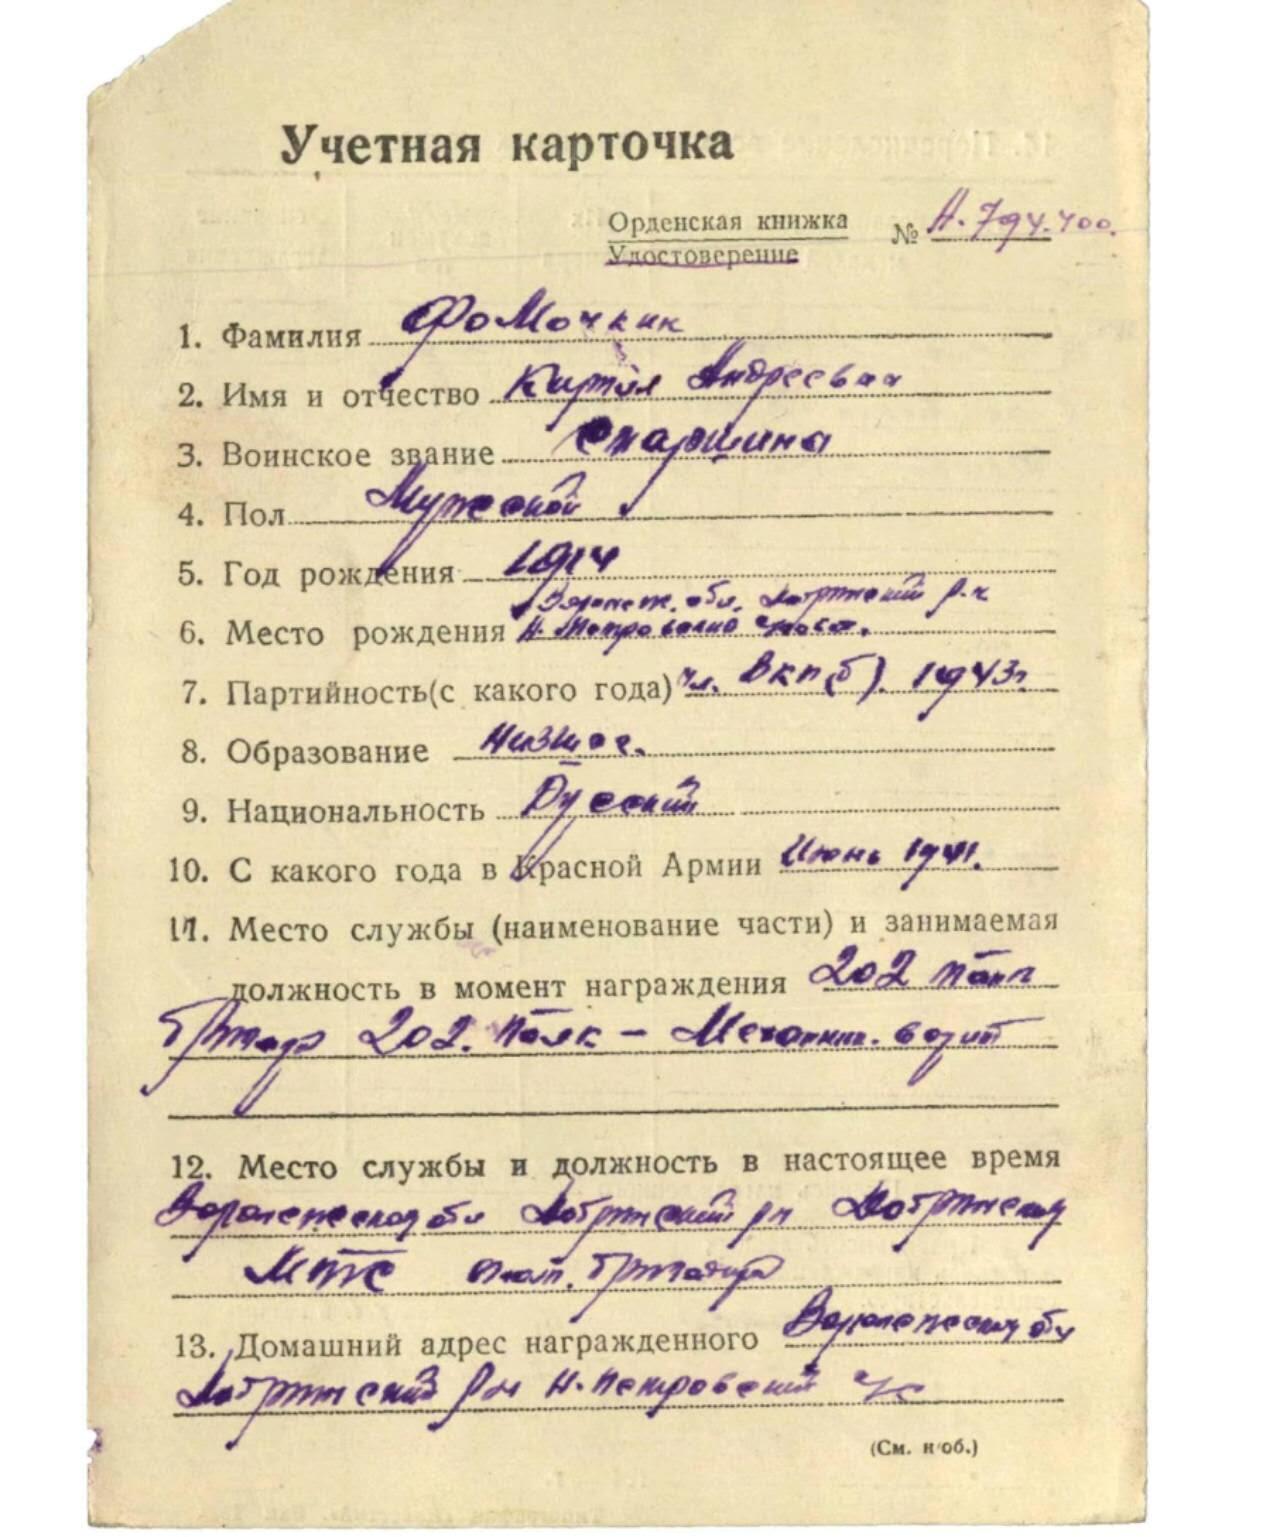 Учетная карточка
Орденская книжка № А-794.400.
Удостоверение
1. Фамилия Фомочкин
2. Имя и отчество Андреевич
3. Воинское звание Старшина
4. Пол Мужской
5. Год рождения 1914
Воронеж. обл. Добринский р-н
6. Место рождения Н. Петровский
7. Партийность(с какого года) чл. ВКП(б). 1943г.
8. Образование Низшее.
9. Национальность Русский
10. С какого года в Красной Армии Июнь 1941.
11. Место службы (наименование части) и занимаемая
должность в момент награждения 202
202. - Механик. водит
12. Место службы и должность в настоящее время
Воронежская обл Добринский рн Добринская
МТС бригадира
13. Домашний адрес награжденного Воронежская обл
Добринский рн Н-Петровский с/с
(См. н/об.)